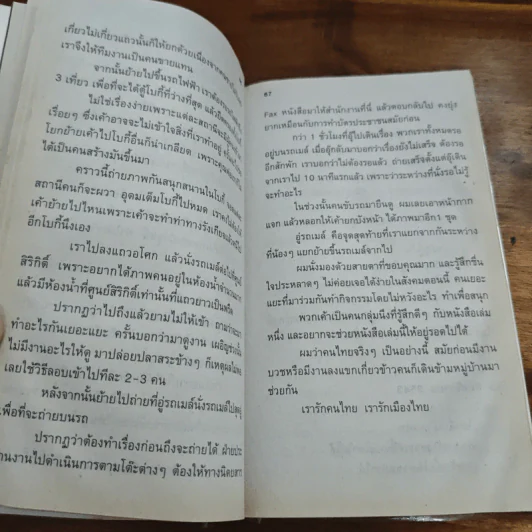 เกี่ยวไม่เกี่ยวแถวนั้นก็ให้ยกด้วยเนื่องจาก
เราจึงให้ทีมงานเป็นคนขายแทน
จากนั้นย้ายไปขึ้นรถไฟฟ้า เราต้อง
3 เที่ยว เพื่อที่จะได้ตู้โบกี้ที่ว่างที่สุด แล้ว
ไม่ใช่เรื่องง่ายเพราะแต่ละสถานีจะมี
เรื่อยๆ ซึ่งเค้าอาจจะไม่เข้าใจสิ่งที่เราทำอยู่
โยกย้ายเค้าไปโบกี้อื่นก็น่าเกลียด เพราะ
ได้เป็นคนสร้างมันขึ้นมา
คราวนี้ถ่ายภาพกันสนุกสนานในโบกี้
สถานีคนก็จะผวา อุดมเต็มโบกี้ไปหมด เรา
เค้าย้ายไปไหนเพราะเค้าจะทำท่าทางรังเกียจ
อีกโบกี้นึงเอง
เราไปลงแถวอโศก แล้วนั่งรถเมล์
สิริกิติ์ เพราะอยากได้ภาพคนอยู่ในห้องน้ำ
แล้วมีห้องน้ำที่ศูนย์สิริกิติ์เท่านั้นที่แถวยาวเป็น
ปรากฏว่าไปถึงแล้วยามไม่ให้เข้า ถาม
ทำอะไรกันเยอะแยะ ครั้นบอกว่ามาดูงาน เผอิญ
ไม่มีงานอะไรให้ดู มาปล่อยปลาสระข้างๆ ก็
เลยใช้วิธีลอบเข้าไปทีละ 2-3 คน
หลังจากนั้นย้ายไปถ่ายที่อู่รถเมล์นั่งรถเมล์ไป
เพื่อที่จะถ่ายบนรถ
ปรากฏว่าต้องทำเรื่องก่อนถึงจะถ่ายได้ ฝ่าย
งานไปดำเนินการตามโต๊ะต่างๆ ต้องให้ทางนิตยสาร
67
Fax หนังสือมาให้สำนักงานที่นี่ แล้วตอบกลับไป คงยุ่ง
ยากเหมือนกับการทำบัตรประชาชนสมัยก่อน
กว่า 1 ชั่วโมงที่อู๊ไปเดินเรื่อง พวกเราทั้งหมดรอ
อยู่บนรถเมล์ เมื่ออู๊กลับมาบอกว่าเรื่องยังไม่เสร็จ ต้องรอ
อีกสักพัก เราบอกว่าไม่ต้องรอแล้ว ถ่ายเสร็จตั้งแต่อู๊เดิน
จากเราไป 10 นาทีแรกแล้ว เพราะว่าระหว่างที่นั่งรอไม่รู้
จะทำอะไร
ในช่วงนั้นคนขับรถมายืนดู ผมเลยเอาหน้ากาก
แจก แล้วหลอกให้เค้ายกบังหน้า ได้ภาพมาอีก 1 ชุด
อู่รถเมล์ คือจุดสุดท้ายที่เราแยกจากกันระหว่าง
ที่น้องๆ แยกย้ายขึ้นรถเมล์จากไป
ผมนั่งมองด้วยสายตาที่ขอบคุณมาก และรู้สึกชื่น
ใจประหลาดๆ ไม่ค่อยเจอได้ง่ายในสังคมตอนนี้ คนเยอะ
แยะที่มาร่วมกันทำกิจกรรมโดยไม่หวังอะไร ทำเพื่อสนุก
พวกเค้าเป็นคนกลุ่มนึงที่รู้สึกดีๆ กับหนังสือเล่ม
หนึ่ง และอยากจะช่วยหนังสือเล่มนี้ให้อยู่รอดไปได้
ผมว่าคนไทยจริงๆ เป็นอย่างนี้ สมัยก่อนมีงาน
บวชหรือมีงานลงแขกเกี่ยวข้าวคนก็เดินข้ามหมู่บ้านมา
ช่วยกัน
เรารักคนไทย เรารักเมืองไทย